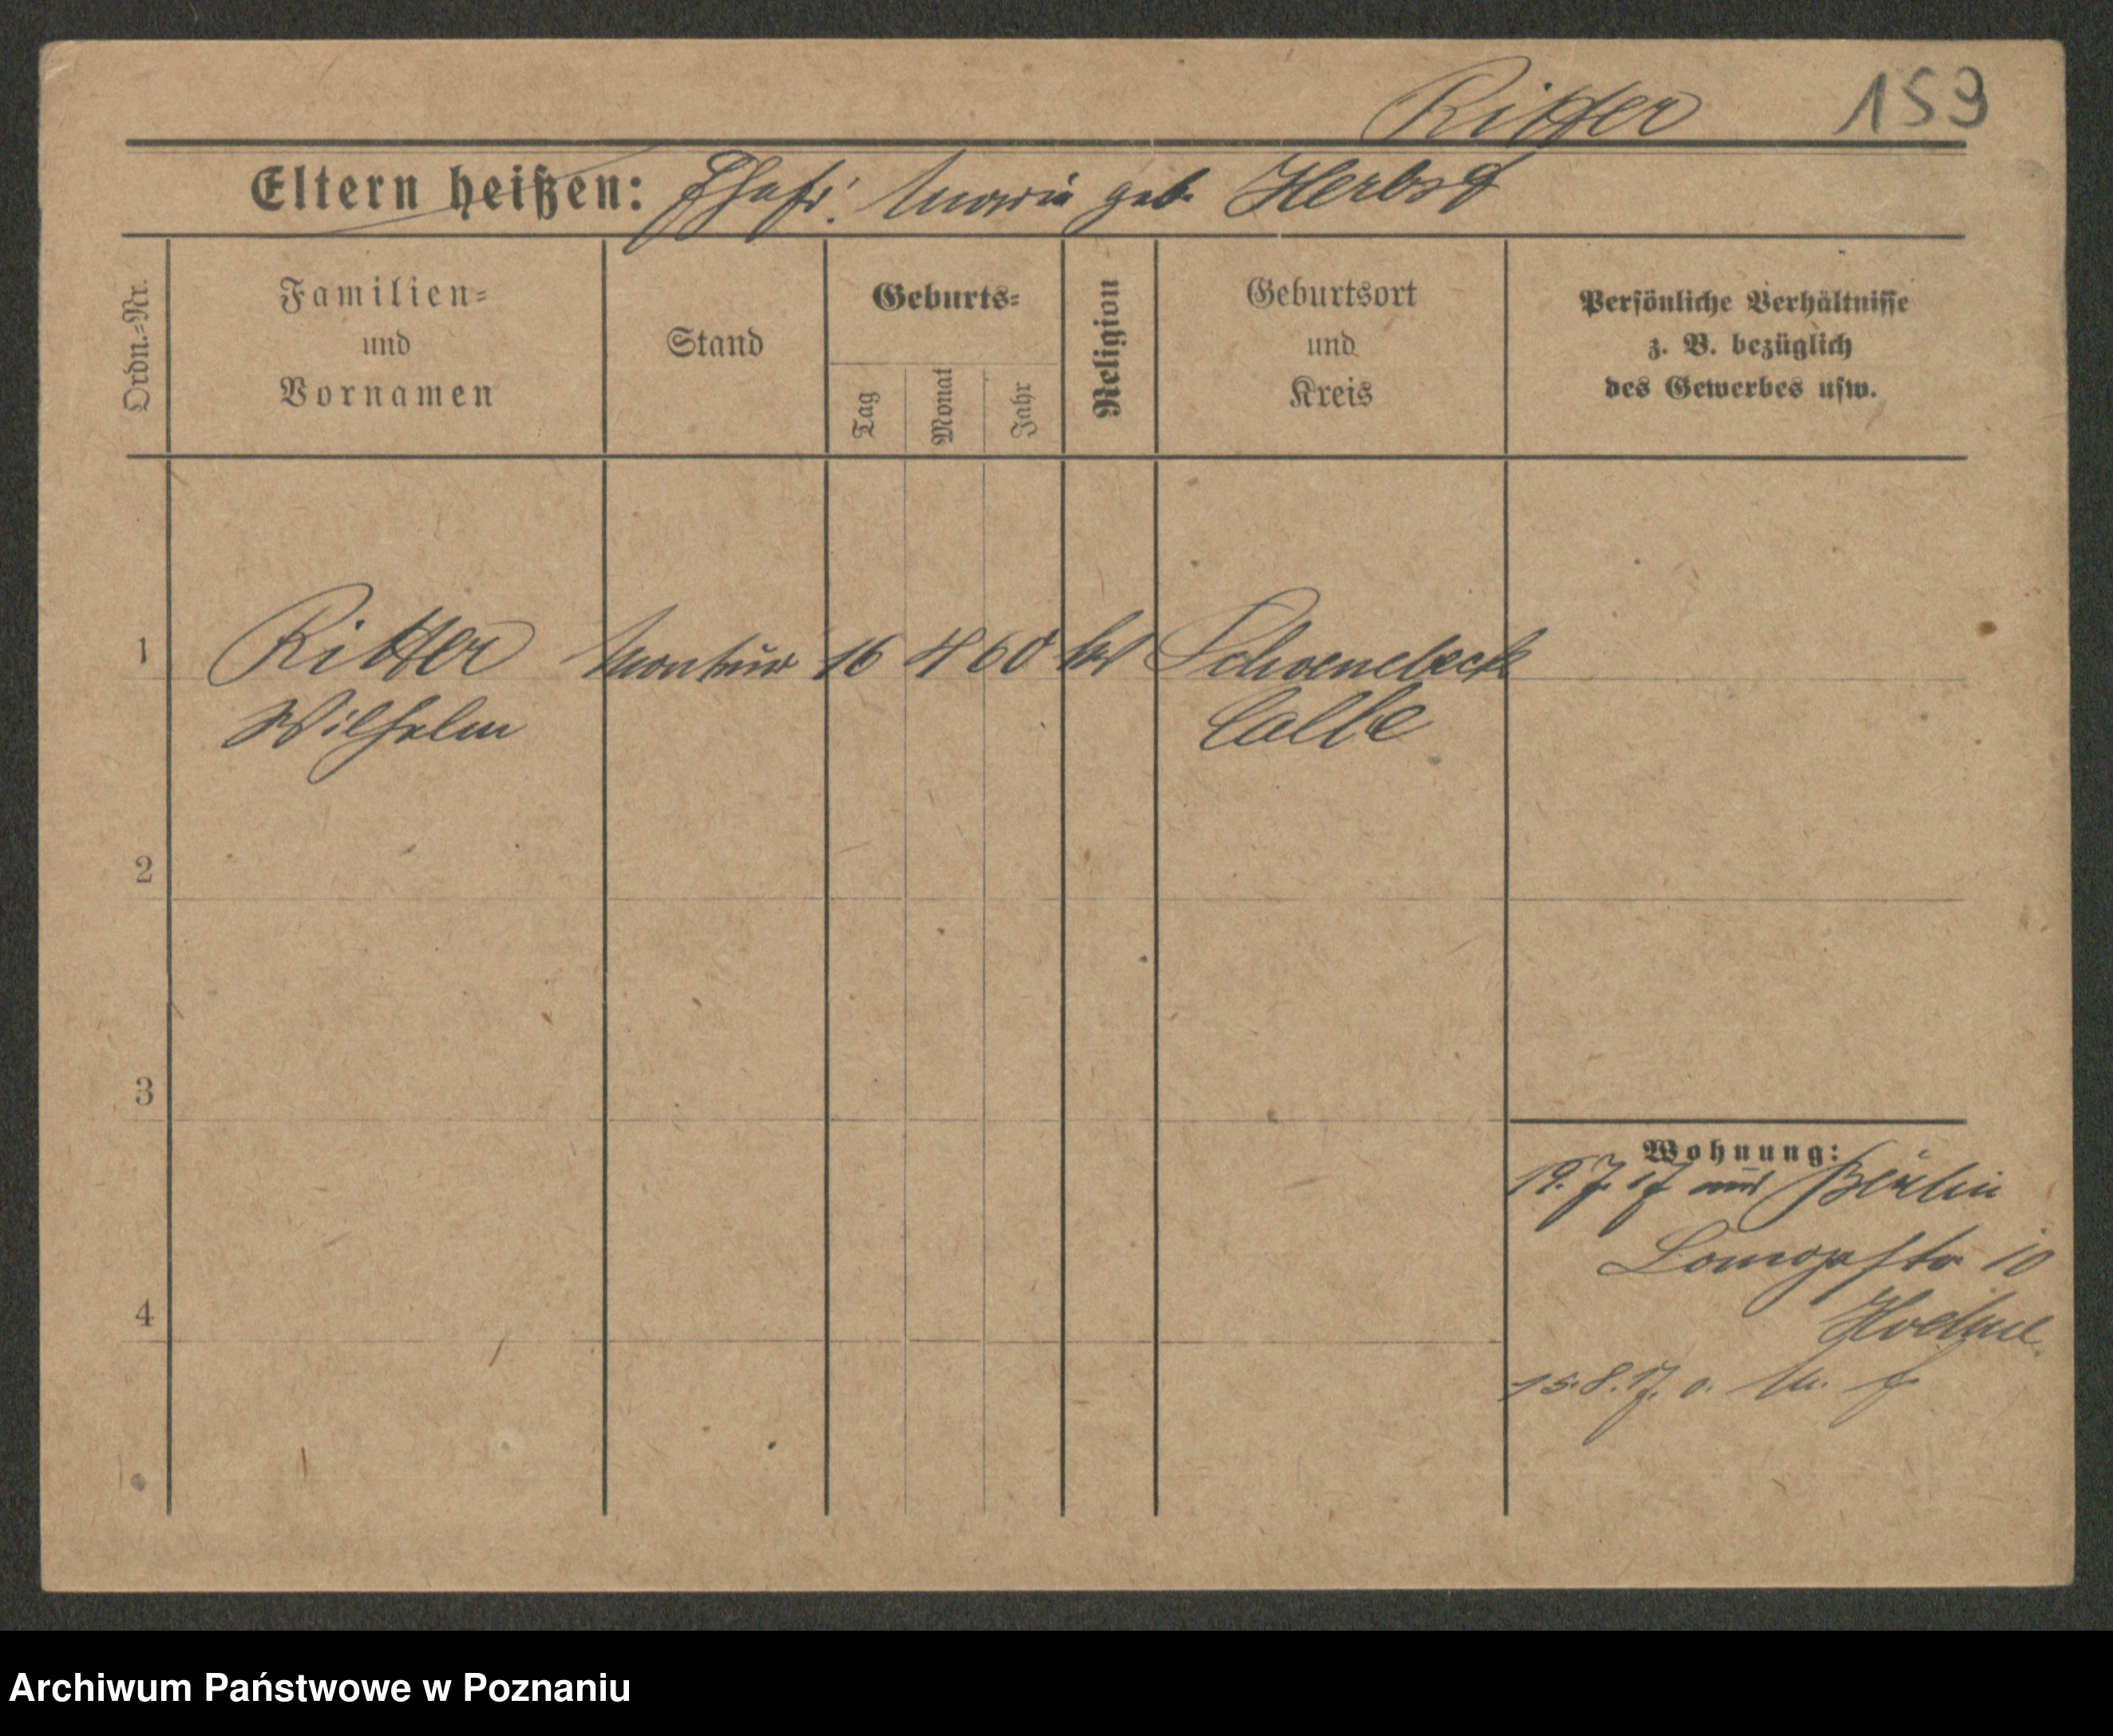 Ritter 159
Eltern heißen: Ehefr. Maria geb. Herbst
Ordn.-Nr.
Familien-
und
Vornamen
Stand
Geburts-
Tag
Monat
Jahr
Religion
Geburtsort
und
Kreis
Persönliche Verhältnisse
z. B. bezüglich
des Gewerbes usw.
1 Ritter Monteur 16 4 60 Schoenebeck
Wilhelm Calbe
2
3
4
Wohnung:
19.7.17 aus Berlin
10
15.8.17.
Archiwum Państwowe w Poznaniu